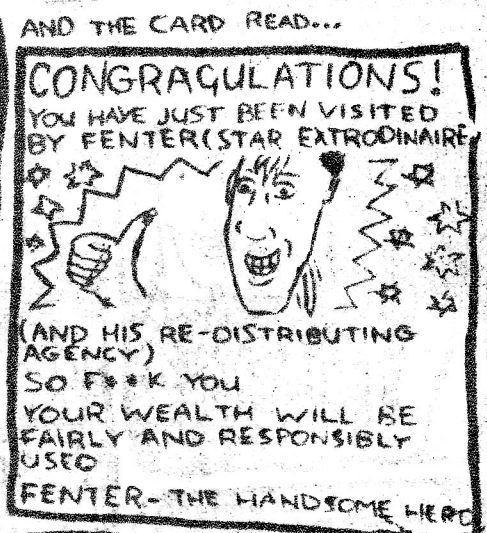 AND THE CARD READ...
CONGRAGULATIONS!
YOU HAVE JUST BEEN VISITED
BY FENTER(STAR EXTRODINAIRE,
(AND HIS RE-DISTRIBUTING
AGENCY)
SO F**K YOU
YOUR WEALTH WILL BE
FAIRLY AND RESPONSIBLY
USED
FENTER- THE HANDSOME HERO